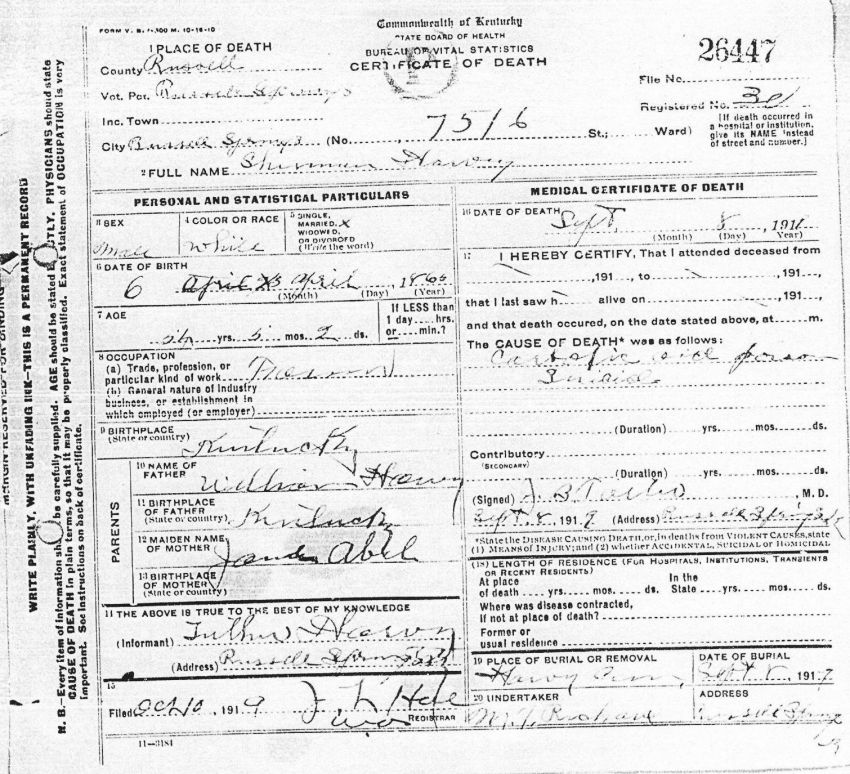 FORM V. S.
Commonwealth of Kentucky
STATE BOARD OF HEALTH
BUREAU OF VITAL STATISTICS
CERTIFICATE OF DEATH
26447
File No.
Registered No.
[If death occurred in a hospital or institution, give its NAME instead of street and number.]
1 PLACE OF DEATH
County Russell
Vot. Pct. Russell Springs
Inc. Town
City Russell Springs (No. 7516 St.; Ward)
2 FULL NAME Sherman
PERSONAL AND STATISTICAL PARTICULARS
3 SEX
Male
4 COLOR OR RACE
White
5 SINGLE, MARRIED, X WIDOWED, OR DIVORCED
(Write the word)
6 DATE OF BIRTH
6 April
(Month) (Day) (Year)
7 AGE
yrs. 5 mos. 2 ds.
If LESS than 1 day hrs. or min.?
8 OCCUPATION
(a) Trade, profession, or particular kind of work
(b) General nature of industry business, or establishment in which employed (or employer)
9 BIRTHPLACE
(State or country) Kentucky
PARENTS
10 NAME OF FATHER William
11 BIRTHPLACE OF FATHER
(State or country) Kentucky
12 MAIDEN NAME OF MOTHER Abel
13 BIRTHPLACE OF MOTHER
(State or country)
14 THE ABOVE IS TRUE TO THE BEST OF MY KNOWLEDGE
(Informant)
(Address) Russell Springs
15
Filed Oct 10 1919
REGISTRAR
11—3184
MEDICAL CERTIFICATE OF DEATH
16 DATE OF DEATH Sept. 8 191
(Month) (Day) (Year)
17 I HEREBY CERTIFY, That I attended deceased from
,191 , to ,191 ,
that I last saw h alive on ,191 ,
and that death occured, on the date stated above, at m.
The CAUSE OF DEATH* was as follows:
(Duration) yrs. mos. ds.
Contributory
(SECONDARY)
(Duration) yrs. mos. ds.
(Signed) J. B. , M. D.
Sept. 8, 1919 (Address) Russell Springs
*State the DISEASE CAUSING DEATH, or, in deaths from VIOLENT CAUSES, state
(1) MEANS OF INJURY; and (2) whether ACCIDENTAL, SUICIDAL OR HOMICIDAL
(18) LENGTH OF RESIDENCE (FOR HOSPITALS, INSTITUTIONS, TRANSIENTS OR RECENT RESIDENTS)
At place of death yrs. mos. ds. In the State yrs. mos. ds.
Where was disease contracted,
If not at place of death?
Former or
usual residence
19 PLACE OF BURIAL OR REMOVAL
DATE OF BURIAL
Sept. 8 1919
20 UNDERTAKER
ADDRESS
Russell Springs
MARGIN RESERVED FOR BINDING
WRITE PLAINLY, WITH UNFADING INK—THIS IS A PERMANENT RECORD
N. B.—Every item of information should be carefully supplied. AGE should be stated EXACTLY. PHYSICIANS should state
CAUSE OF DEATH in plain terms, so that it may be properly classified. Exact statement of OCCUPATION is very
important. See instructions on back of certificate.